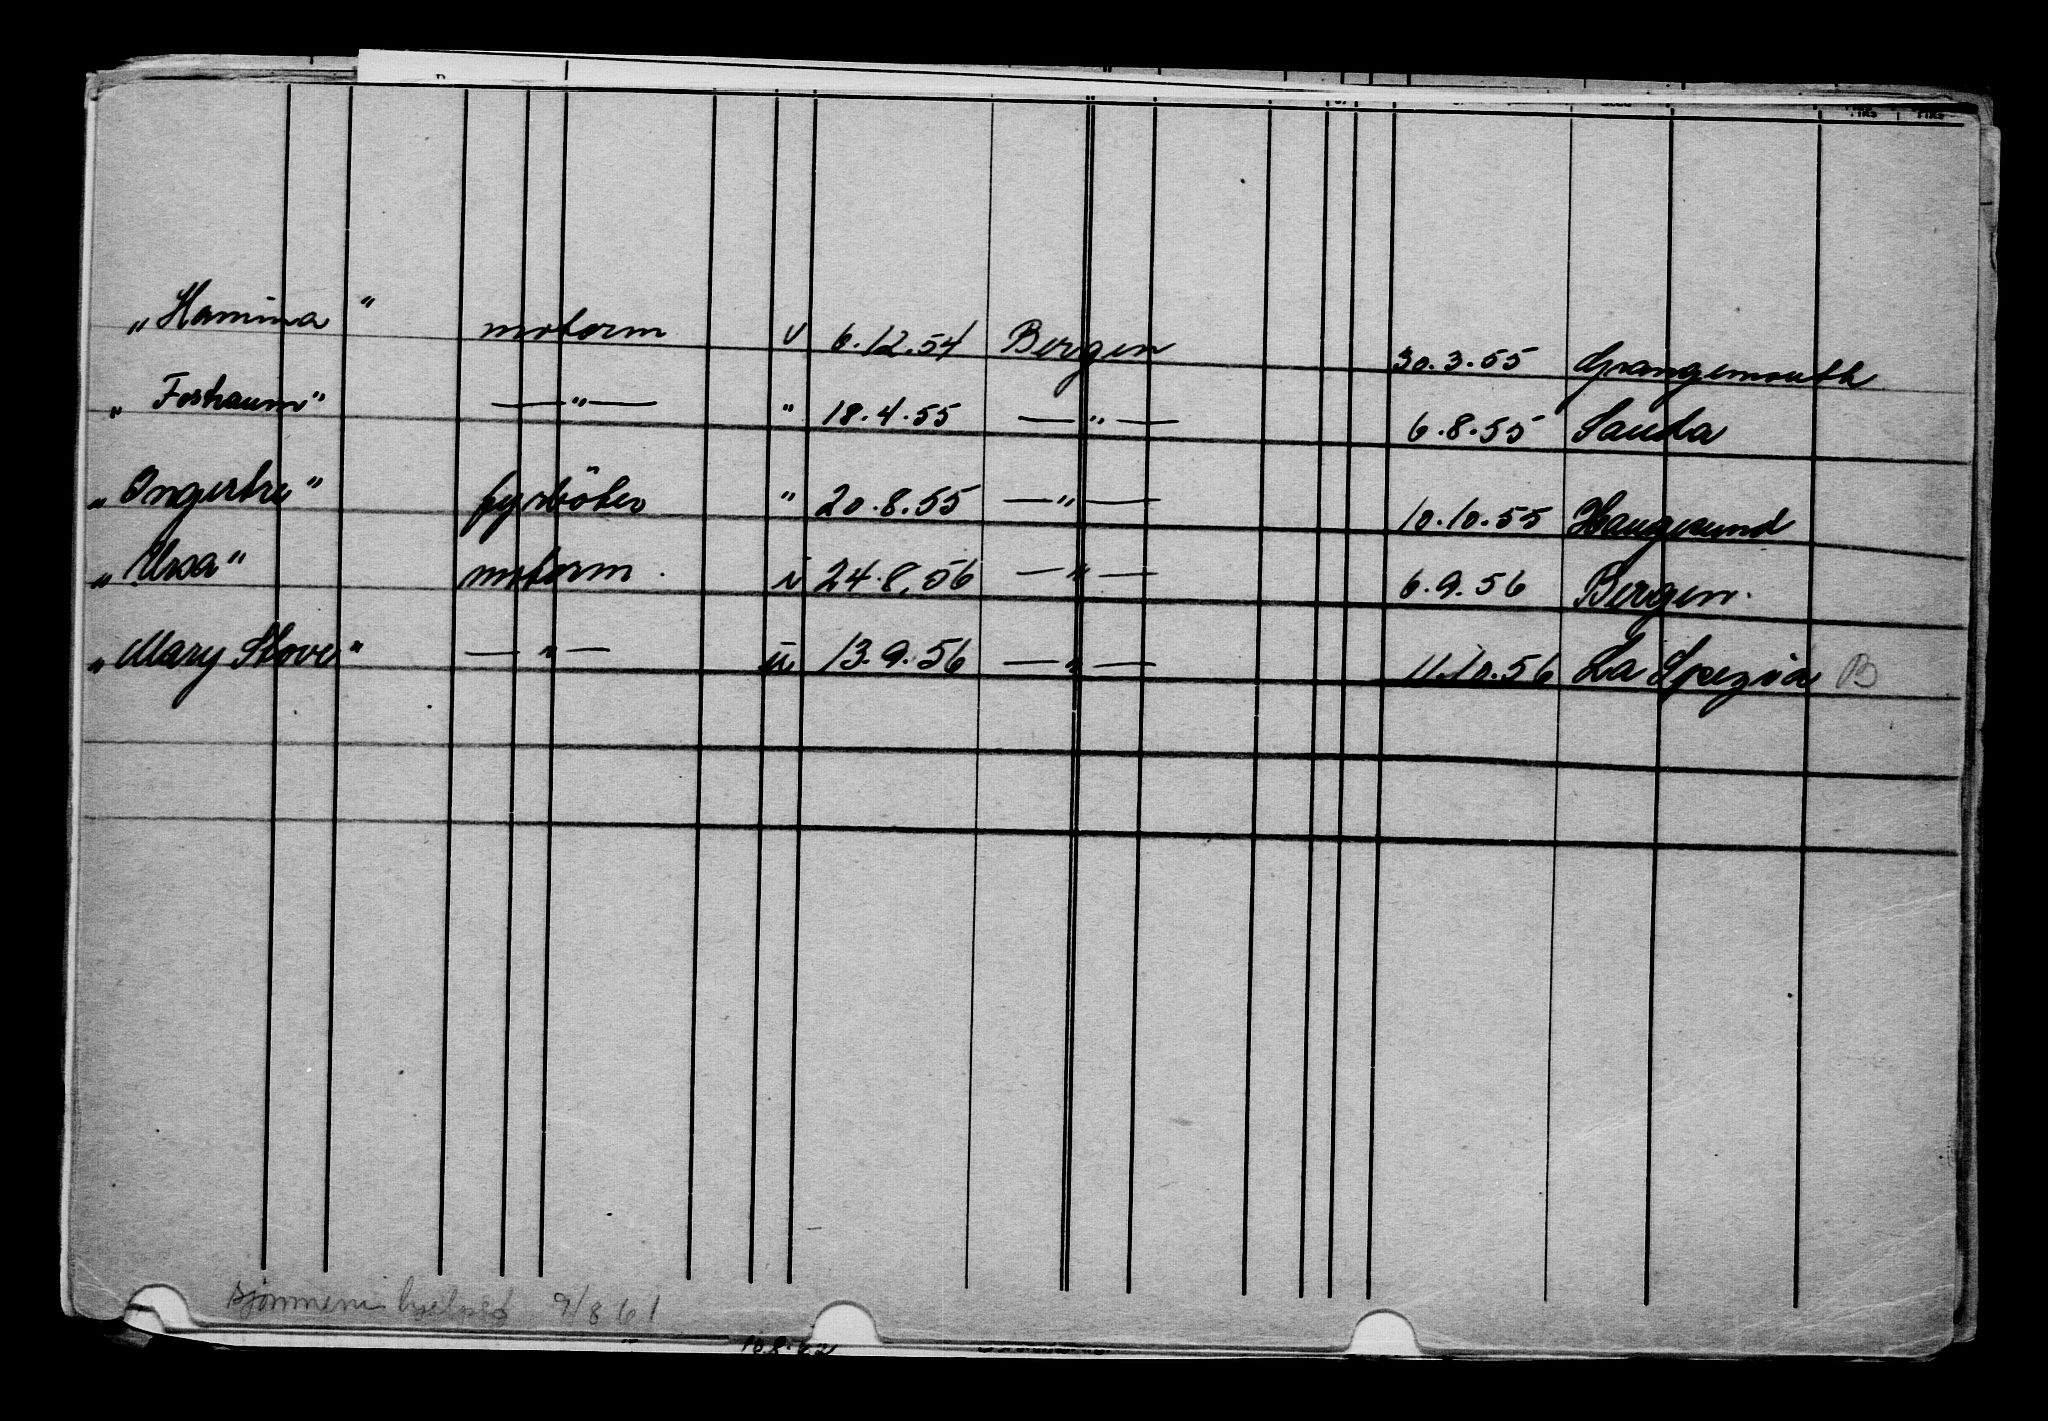 „Hamina" motorm v 6.12.54 Bergen 30.3.55 Grangemouth
„Fostraum" —„— " 18.4.55 —„— 6.8.55 Sauda
„Ingertre" fyrböter " 20.8.55 —„— 10.10.55 Haugesund
„Ursa" motorm. u 24.8.56 —„— 6.9.56 Bergen.
„Mary Stove" —„— u 13.9.56 —„— 11.10.56 La Spezia B
9/8 61